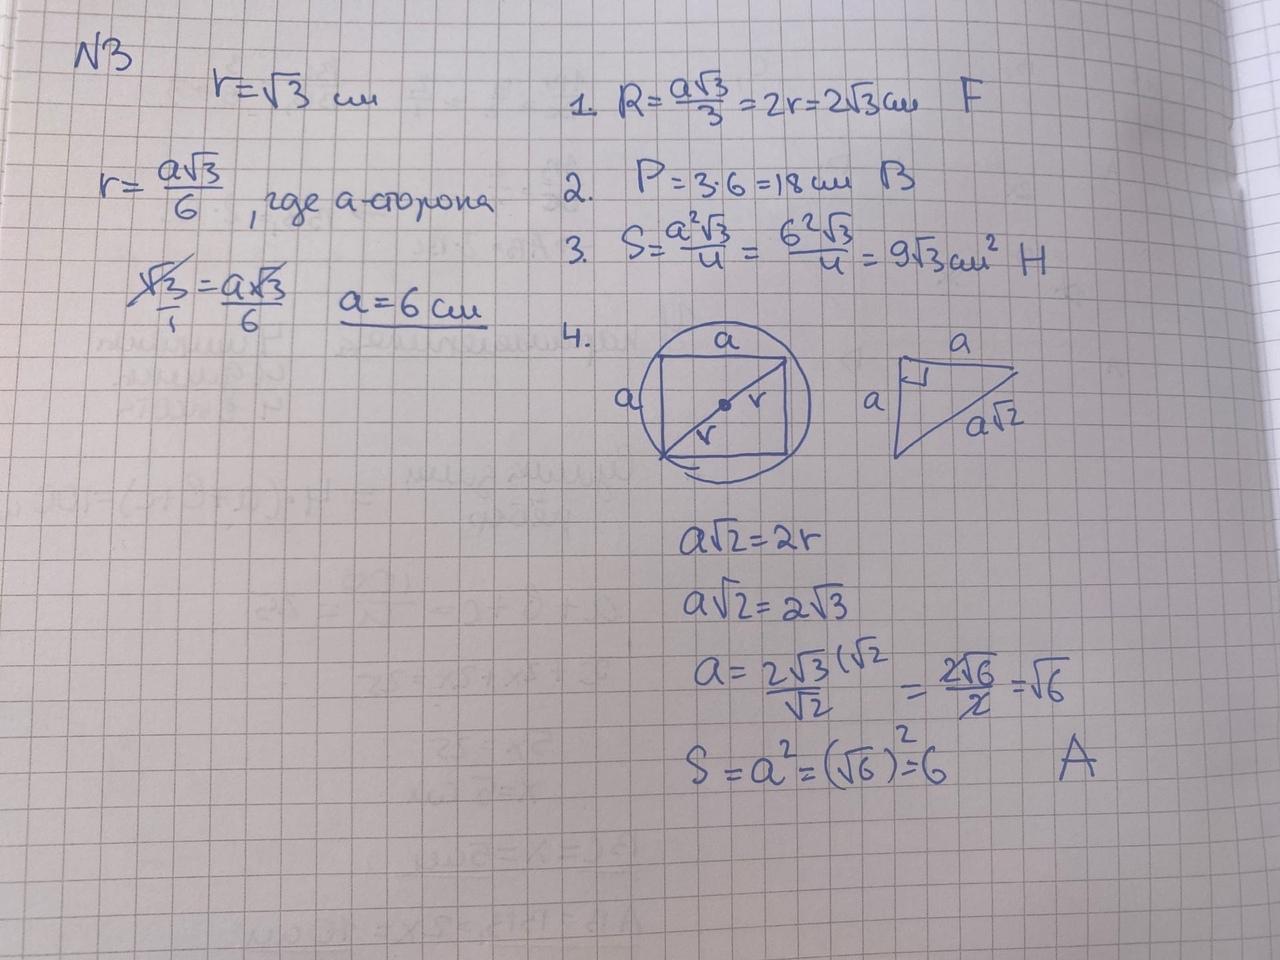 N3
r=√3 см
r= a√3/6, где a-сторона
√3/1 = a√3/6 a=6 см
1. R= a√3/3 =2r=2√3 см F
2. P=3·6=18 см B
3. S= a²√3/4 = 6²√3/4 = 9√3 см² H
4.
a
a
r
r
a
a
a√2
a√2=2r
a√2=2√3
a= 2√3(√2/√2 = 2√6/2 =√6
S=a²=(√6)²=6 A